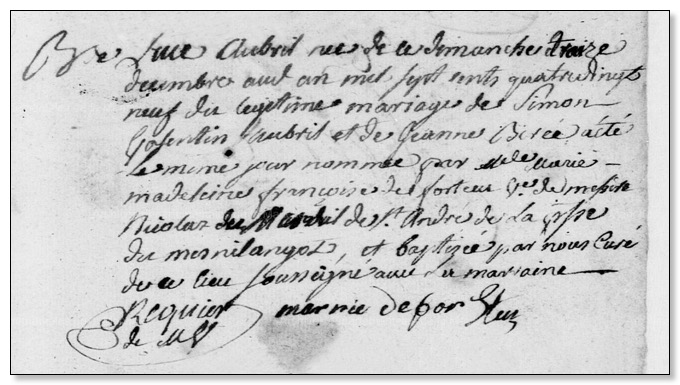 Bre Luce Aubril née de ce dimanche treize
decembre aud an mil sept cents quatrevingt
neuf du legitime mariage de Simon
Aubril et de Jeanne Birée a été
Le meme jour nommée par Mle marie
madeleine françoise de forteu Ve. de messire
Nicolas du de St. André de La
du mesnilangot, et baptizée par nous Curé
de ce lieu soussigné avec La maraine
Requier marnie de for
de